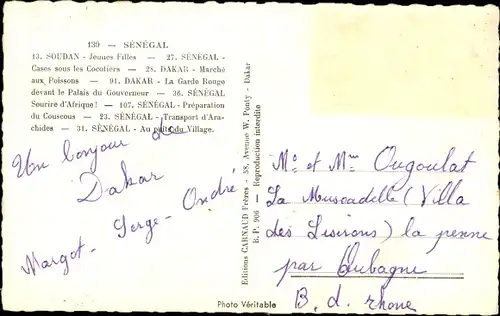 139 — SÉNÉGAL
13. SOUDAN - Jeunes Filles — 27. SÉNÉGAL -
Cases sous les Cocotiers — 28. DAKAR - Marché
aux Poissons — 91. DAKAR - La Garde Rouge
devant le Palais du Gouverneur — 36. SÉNÉGAL
Sourire d'Afrique! — 107. SÉNÉGAL - Préparation
du Couscous — 23. SÉNÉGAL - Transport d'Ara-
chides — 31. SÉNÉGAL - Au puits du Village.
Un bonjour de
Dakar
Margot - Serge - André
Editions CARNAUD Frères - 58, Avenue W. Ponty - Dakar
R.P. 906 - Reproduction interdite
Mr et Mme Ougoulat
La Muscadelle (Villa
des Liserons) la penne
par Aubagne
B. d. rhone
Photo Véritable